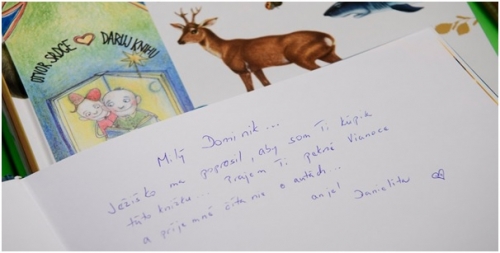 OTVOR SRDCE ♥ DARUJ KNIHU
Milý Dominik...
Ježiško ma poprosil, aby som Ti kúpila
túto knižku... Prajem Ti pekné Vianoce
a príjemné čítanie o autách...
anjel Danielita ♡